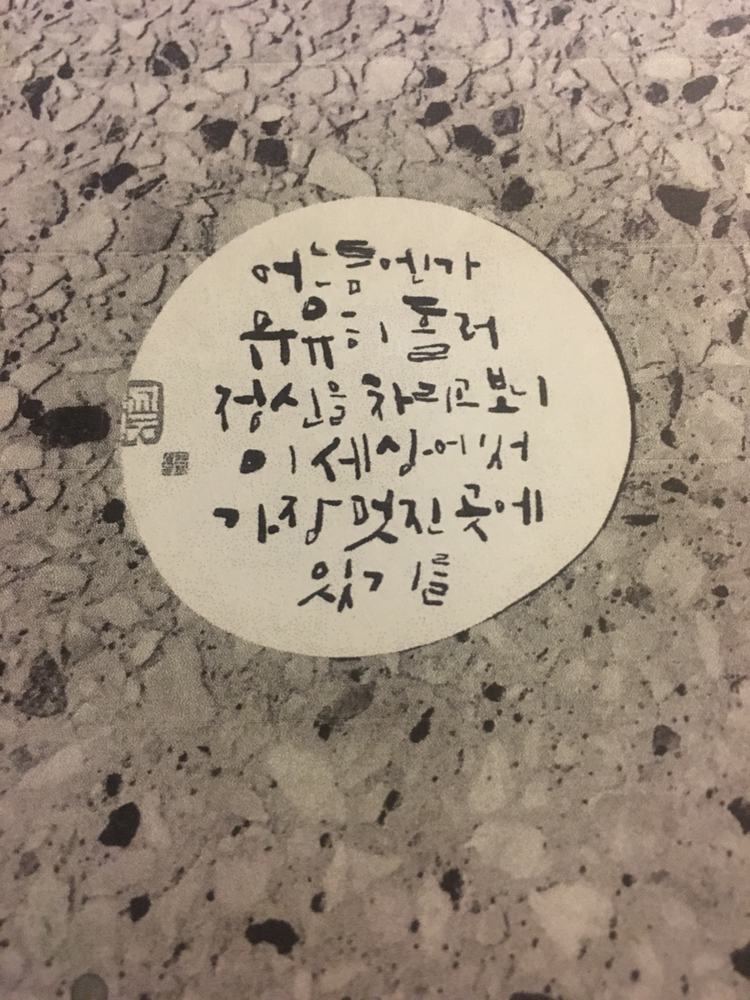 어느틈엔가
유유히 흘러
정신을 차리고 보니
이 세상에서
가장 멋진 곳에
있기를